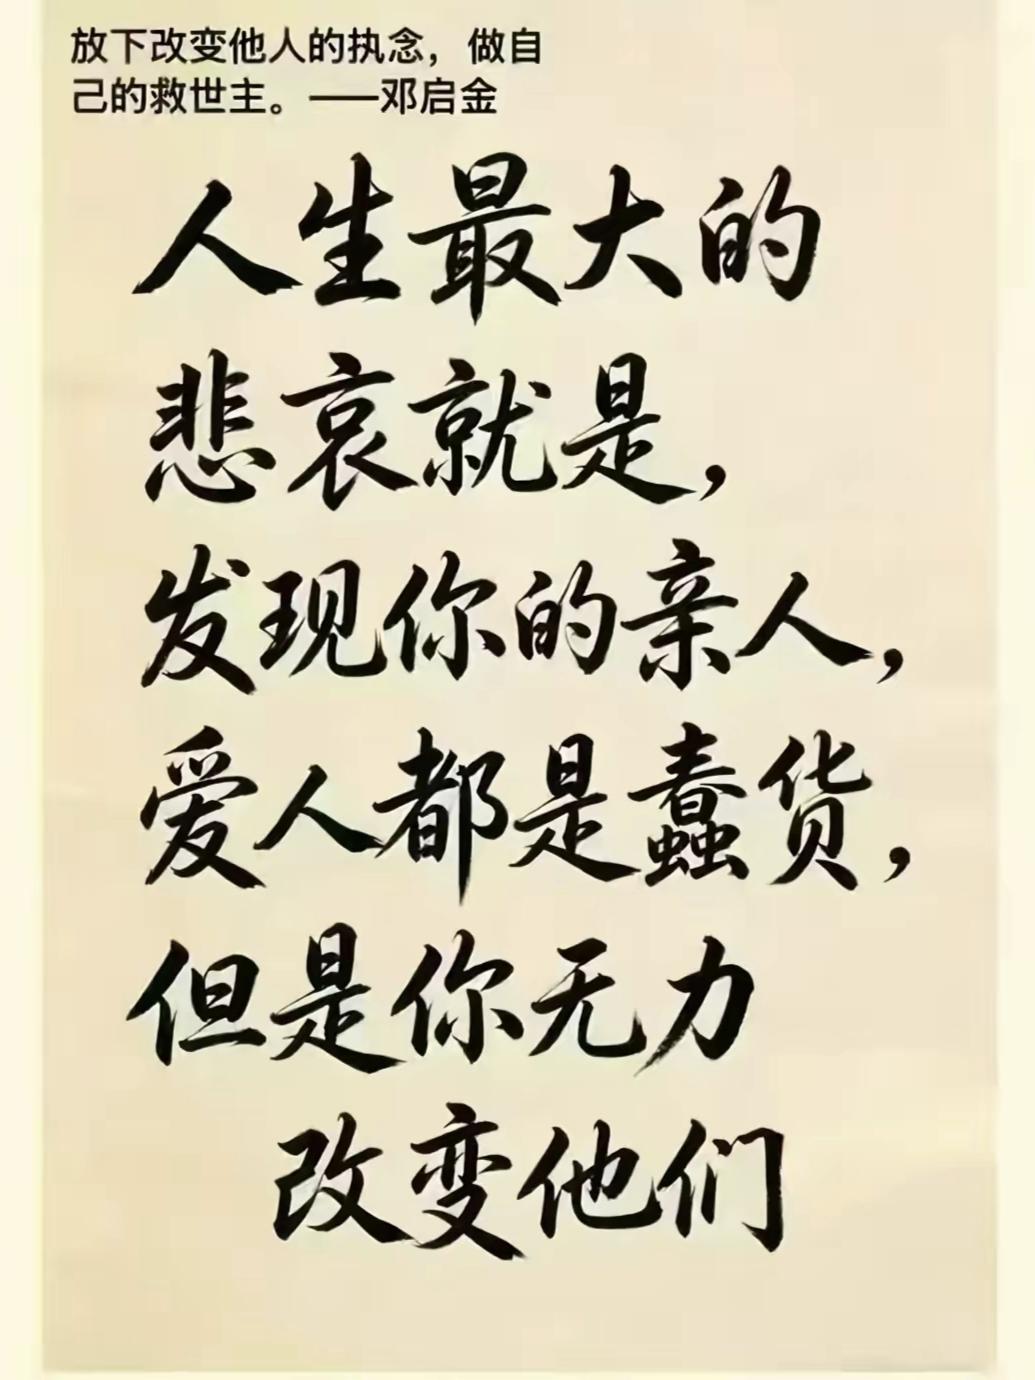 放下改变他人的执念，做自
己的救世主。——邓启金
人生最大的
悲哀就是，
发现你的亲人，
爱人都是蠢货，
但是你无力
改变他们